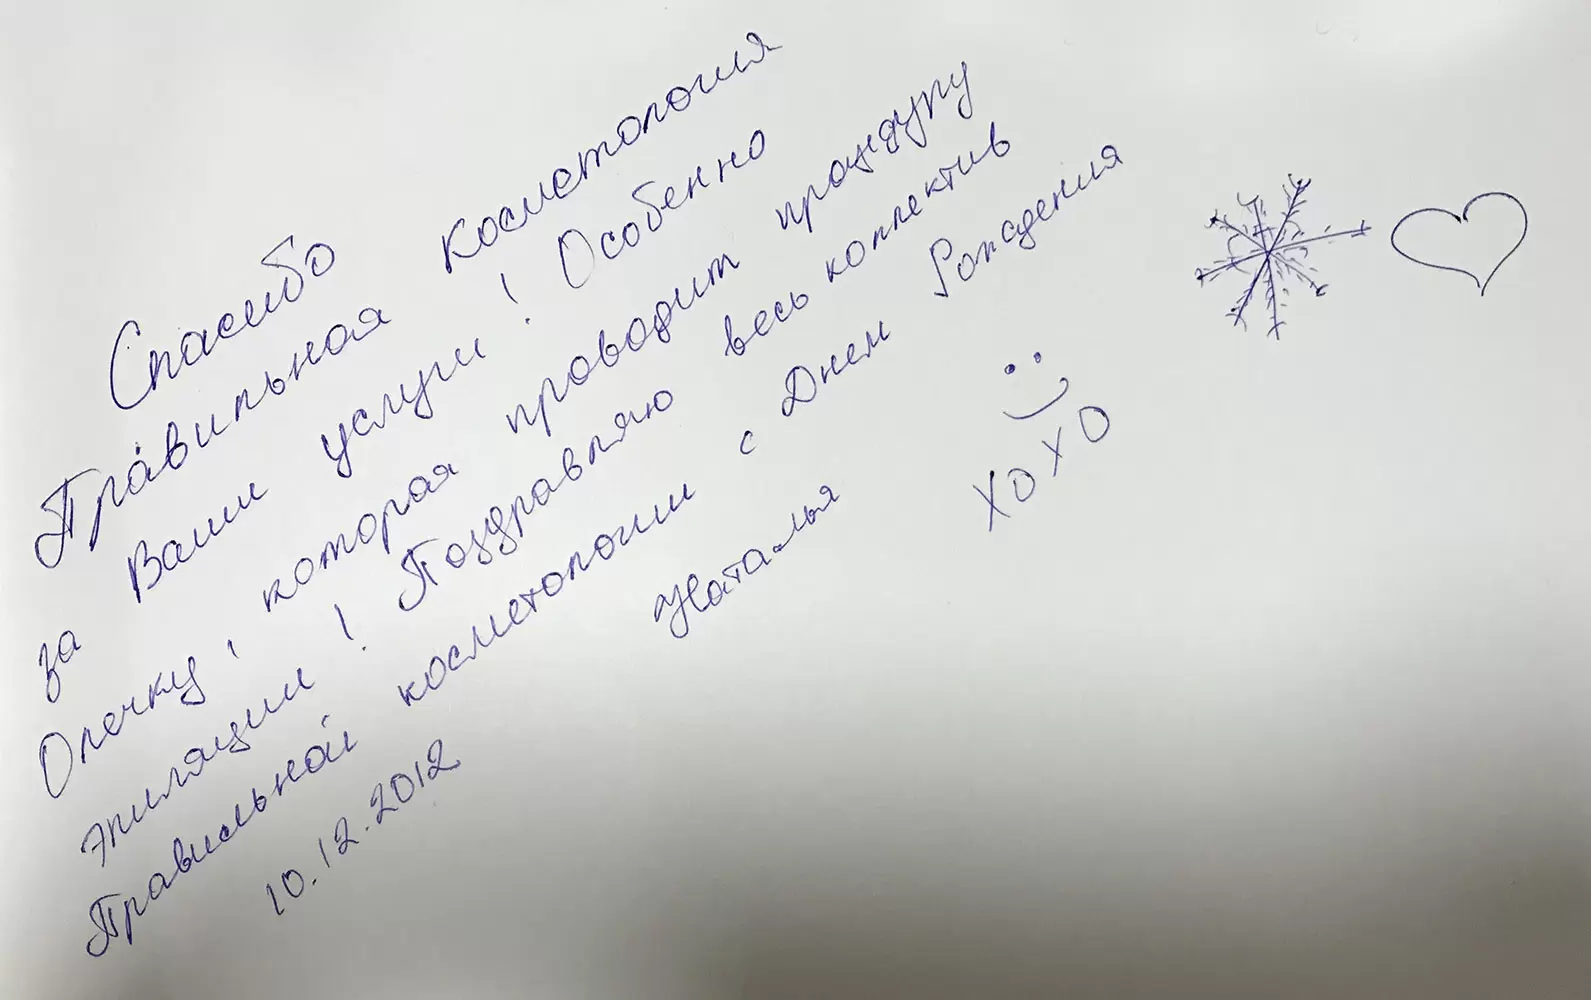 Спасибо косметология
Правильная
за Ваши услуги! Особенно
Олечку, которая проводит процедуру
эпиляции! Поздравляю весь коллектив
Правильной косметологии с Днем Рождения
10.12.2012 Наталья
XOXO